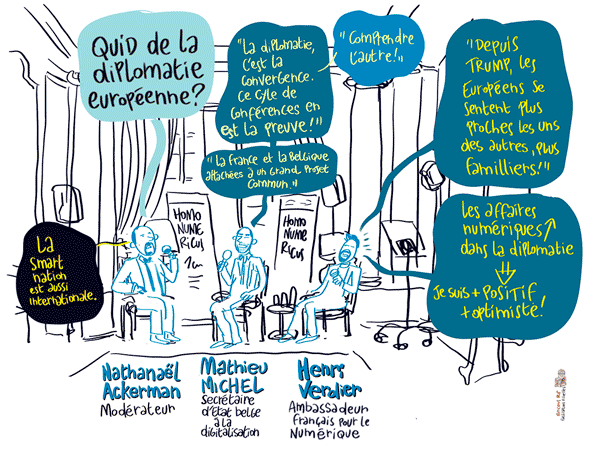 QUID DE LA
DIPLOMATIE
EUROPÉENNE?
"LA DIPLOMATIE,
C'EST LA
CONVERGENCE.
CE CYCLE DE
CONFÉRENCES EN
EST LA PREUVE!"
"LA FRANCE ET LA BELGIQUE
ATTACHÉES À UN GRAND PROJET
COMMUN."
"COMPRENDRE
L'AUTRE!"
"DEPUIS
TRUMP, LES
EUROPÉENS SE
SENTENT PLUS
PROCHES LES UNS
DES AUTRES, PLUS
FAMILLIERS!"
LES AFFAIRES
NUMÉRIQUES
DANS LA DIPLOMATIE
JE SUIS + POSITIF
+ OPTIMISTE!
LA
SMART
NATION
EST AUSSI
INTERNATIONALE.
HOMO
NUME
RICUS
HOMO
NUME
RICUS
Nathanaël
Ackerman
Modérateur
Mathieu
MICHEL
Secrétaire
d'État belge
à la
digitalisation
Henri
Verdier
Ambassadeur
français pour le
Numérique